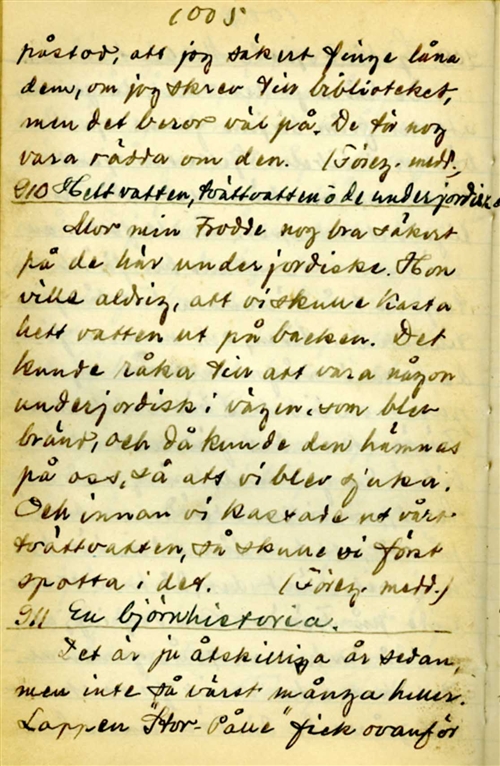 1005
påstod, att jag säkert finge låna
dem, om jag skrev till biblioteket,
men det beror väl på. De tör nog
vara rädda om den. (Föreg. medd.)
910 Hett vatten, tvättvatten o de underjordiska
Mor min trodde nog bra säkert
på de här underjordiske. Hon
ville aldrig, att vi skulle kasta
hett vatten ut på backen. Det
kunde råka till att vara någon
underjordisk i vägen, som blev
bränd, och då kunde den hämnas
på oss, så att vi blev sjuka.
Och innan vi kastade ut vårt
tvättvatten, så skulle vi först
spotta i det. (Föreg. medd.)
911 En björnhistoria.
Det är ju åtskilliga år sedan,
men inte så värst många heller.
Lappen "Stor-Pålle" fick ovanför